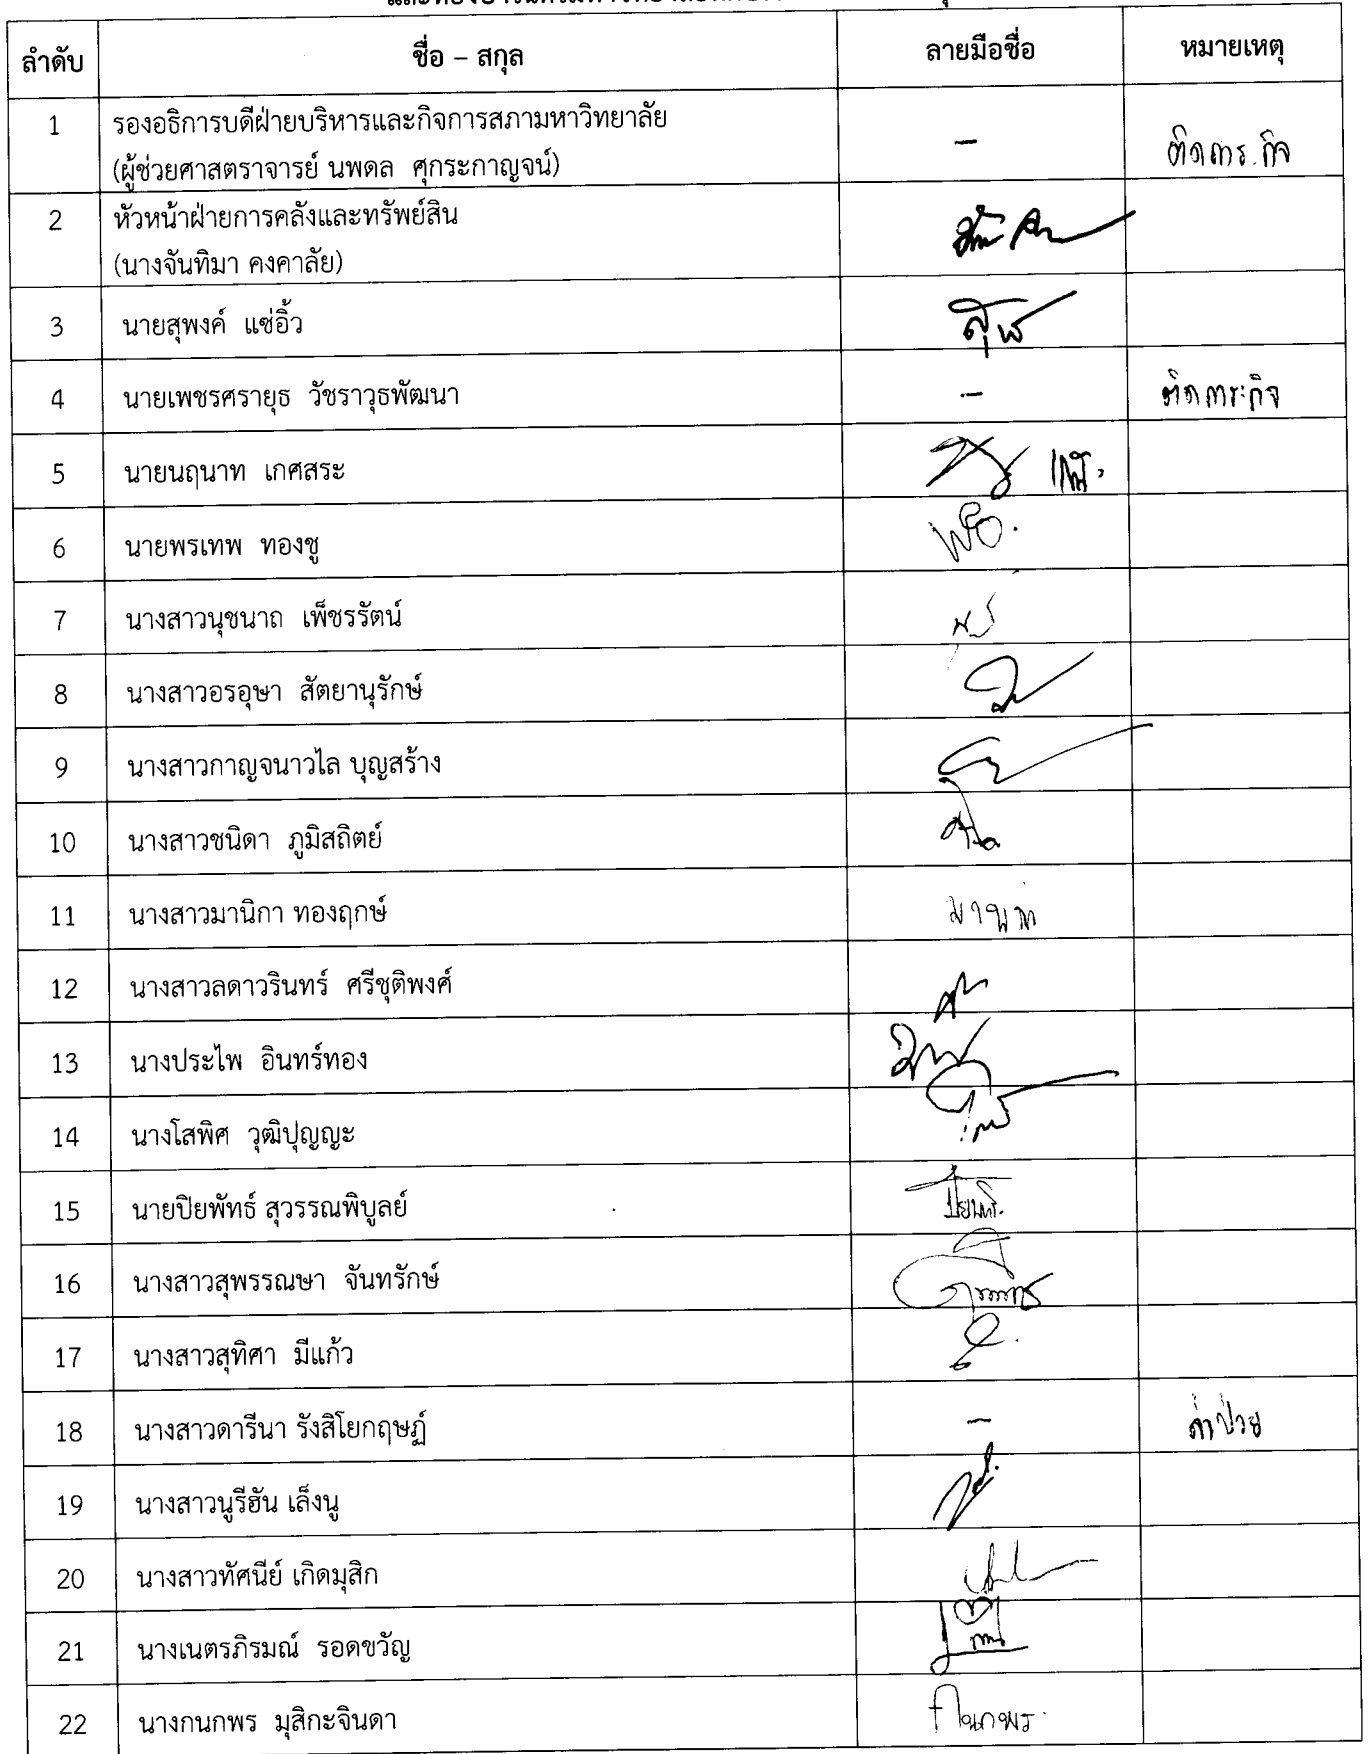 ลำดับ ชื่อ – สกุล ลายมือชื่อ หมายเหตุ
1 รองอธิการบดีฝ่ายบริหารและกิจการสภามหาวิทยาลัย
(ผู้ช่วยศาสตราจารย์ นพดล ศุกระกาญจน์) – ติดภาระกิจ
2 หัวหน้าฝ่ายการคลังและทรัพย์สิน
(นางจันทิมา คงคาลัย)
3 นายสุพงค์ แซ่อิ้ว
4 นายเพชรศรายุธ วัชราวุธพัฒนา – ติดภาระกิจ
5 นายนฤนาท เกศสระ แทน
6 นายพรเทพ ทองชู
7 นางสาวนุชนาถ เพ็ชรรัตน์
8 นางสาวอรอุษา สัตยานุรักษ์
9 นางสาวกาญจนาวไล บุญสร้าง
10 นางสาวชนิดา ภูมิสถิตย์
11 นางสาวมานิกา ทองฤกษ์ มานิกา
12 นางสาวลดาวรินทร์ ศรีชุติพงศ์
13 นางประไพ อินทร์ทอง
14 นางโสพิศ วุฒิปุญญะ
15 นายปิยพัทธ์ สุวรรณพิบูลย์
16 นางสาวสุพรรณษา จันทรักษ์
17 นางสาวสุทิศา มีแก้ว
18 นางสาวดารีนา รังสิโยกฤษฏ์ – ลาป่วย
19 นางสาวนูรีฮัน เล็งนู
20 นางสาวทัศนีย์ เกิดมุสิก
21 นางเนตรภิรมณ์ รอดขวัญ
22 นางกนกพร มุสิกะจินดา กนกพร